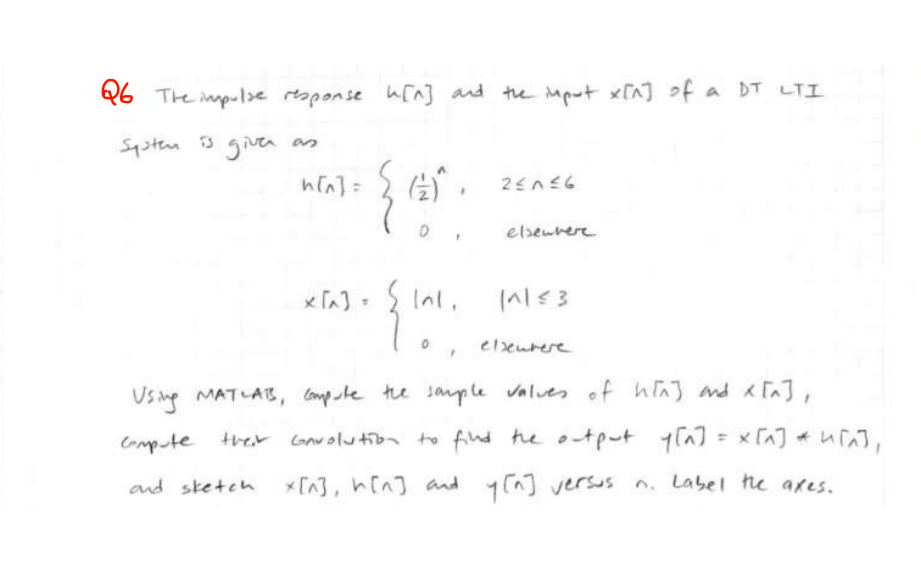 Q6 The impulse response h[n] and the input x[n] of a DT LTI
system is given as
h[n] = { (1/2)^n , 2≤n≤6
0 , elsewhere
x[n] = { |n|, |n|≤3
0 , elsewhere
Using MATLAB, compute the sample values of h[n] and x[n],
compute their convolution to find the output y[n] = x[n] * h[n],
and sketch x[n], h[n] and y[n] versus n. Label the axes.